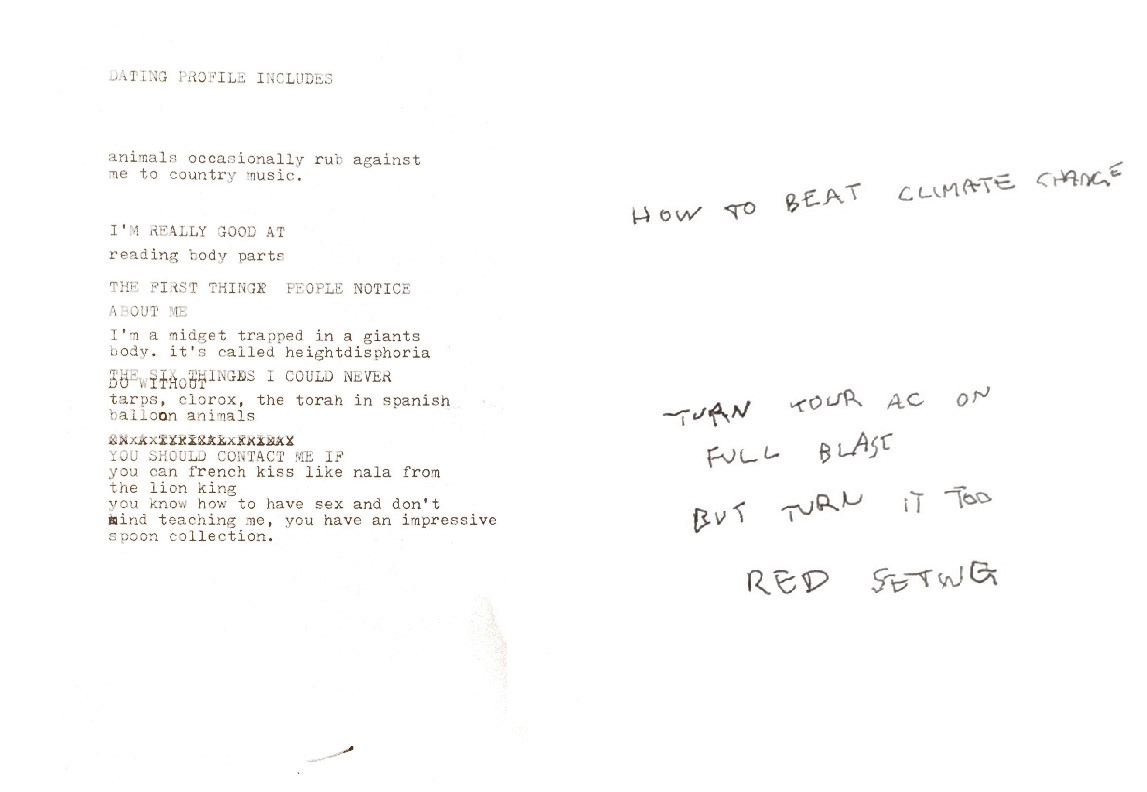 DATING PROFILE INCLUDES
animals occasionally rub against
me to country music.
I'M REALLY GOOD AT
reading body parts
THE FIRST THINGX  PEOPLE NOTICE
ABOUT ME
I'm a midget trapped in a giants
body. it's called heightdisphoria
THE SIX THINGES I COULD NEVER
DO WITHOUT
tarps, clorox, the torah in spanish
balloon animals
YOU SHOULD CONTACT ME IF
you can french kiss like nala from
the lion king
you know how to have sex and don't
mind teaching me, you have an impressive
spoon collection.
HOW TO BEAT CLIMATE CHANGE
TURN YOUR AC ON
FULL BLAST
BUT TURN IT TOO
RED SETING